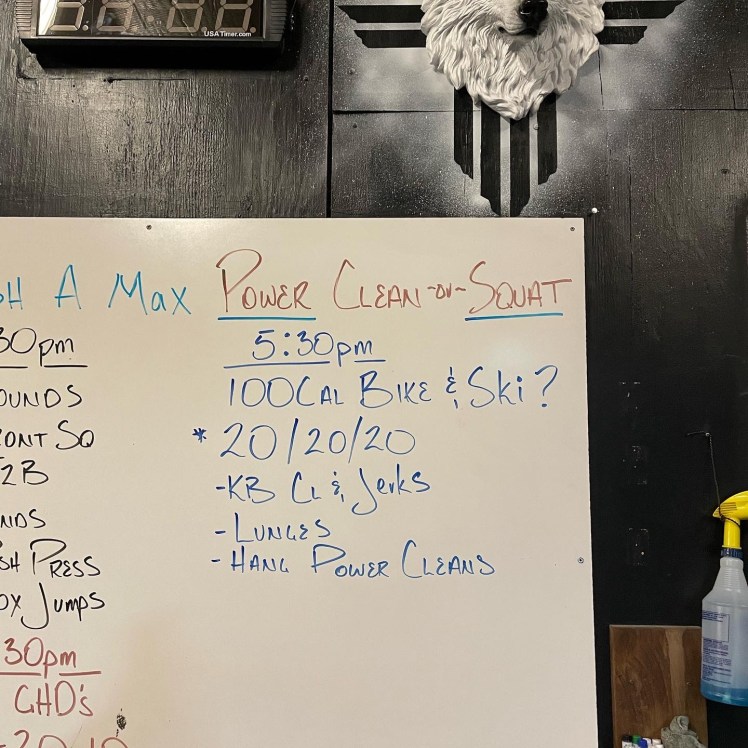 USA Timer.com
A Max Power Clean -or- Squat
30pm
Sq
2B
Press
Jumps
30pm
GHD's
5:30pm
100Cal Bike & Ski?
* 20/20/20
-KB Cl & Jerks
- Lunges
- Hang Power Cleans